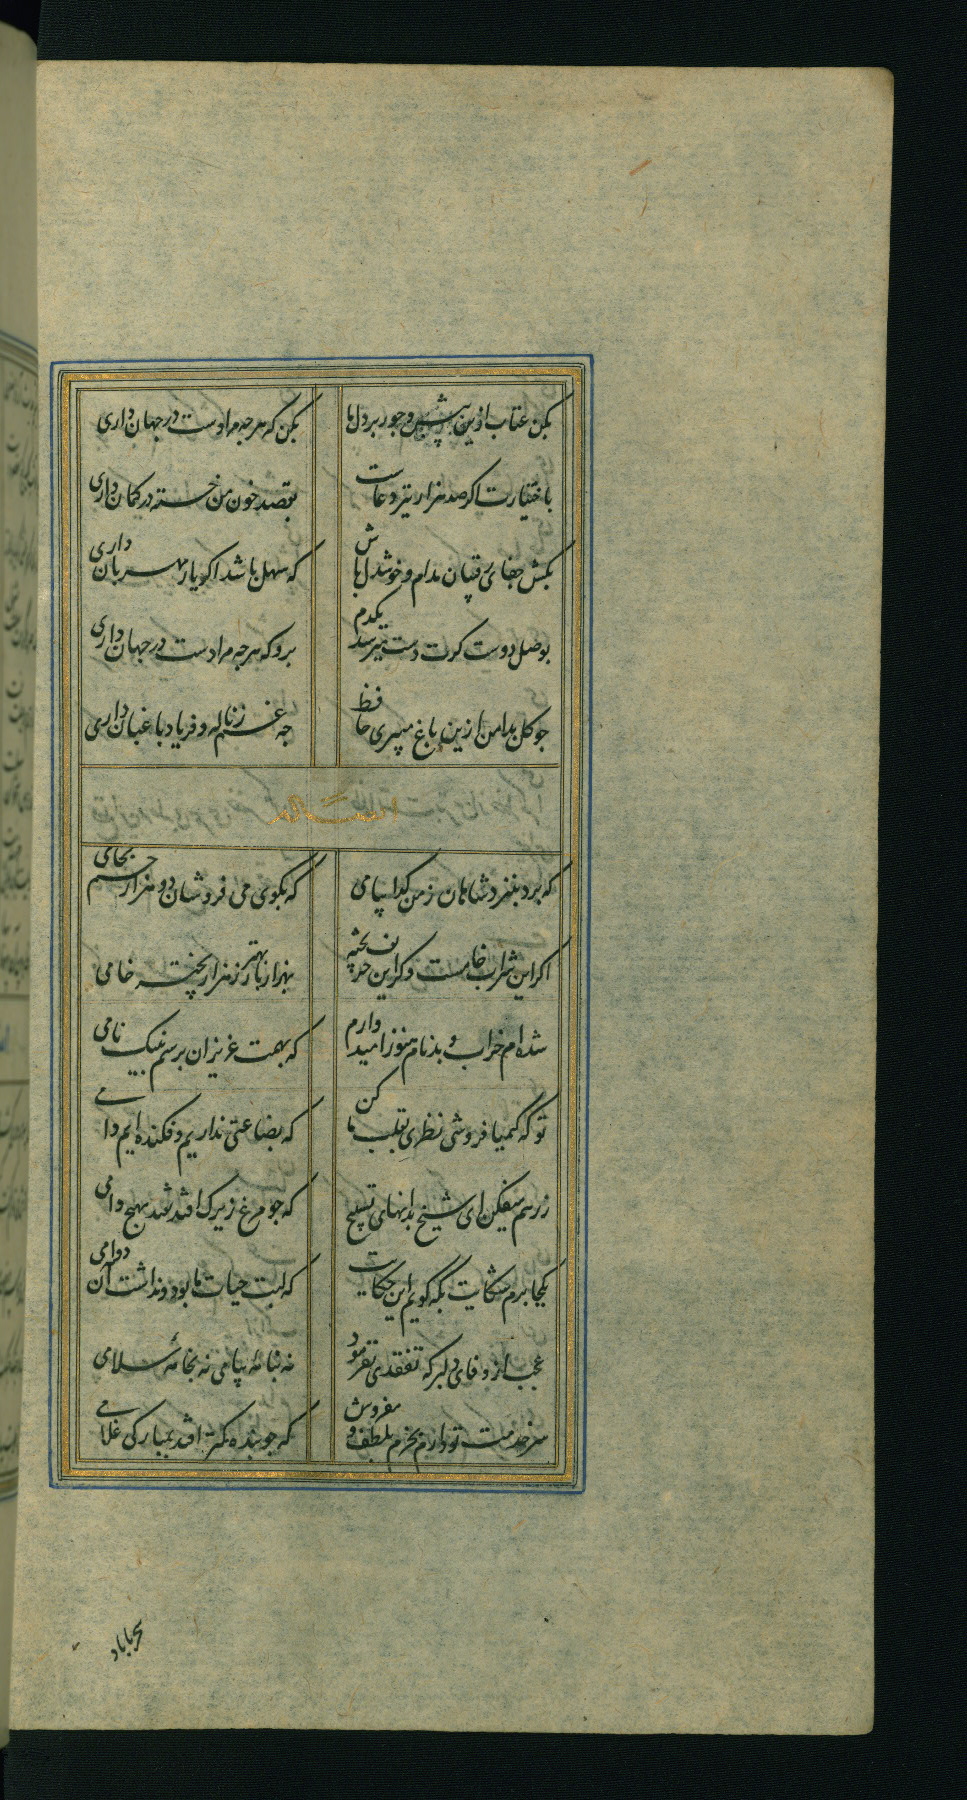 بکن عتاب ازین بیش و جور بر دل ما
بکن که هرچه مرادست در جهان داری
باختیارت اکر صد هزار تیر دعاست
بقصد خون من خسته در کمان داری
بکش جفای رقیبان مدام و خوشدل باش
که سهل باشد اکر یار مهربان داری
بوصل دوست کرت دست میرسد یکدم
برو که هرچه مرادست در جهان داری
جو کل بدامن ازین باغ میبری حافظ
جه غم ز ناله و فریاد باغبان داری
که برد بنزد شاهان ز من کدا پیامی
که بکوی می فروشان دو هزار جم بجامی
اکر این شراب خامست و کر این حریف پخته
بهزار بار بهتر ز هزار پخته خامی
شده‌ام خراب و بدنام و هنوز امید دارم
که بهمت عزیزان برسم بنیک نامی
تو که کیمیا فروشی نظری بقلب ما کن
که بضاعتی نداریم و فکنده‌ایم دامی
ز رهم میفکن ای شیخ بدانهای تسبیح
که جو مرغ زیرک افتد نفتد بهیج دامی
بکجا برم شکایت بکه کویم این حکایت
که لبت حیات ما بود و نداشت آن دوامی
عجب از وفای دلبر که تفقدی نفرمود
نه بنامهٔ پیامی نه بخامهٔ سلامی
سر خدمت تو دارم بخرم بلطف و مفروش
که جو بنده کمتر افتد بمبارکی غلامی